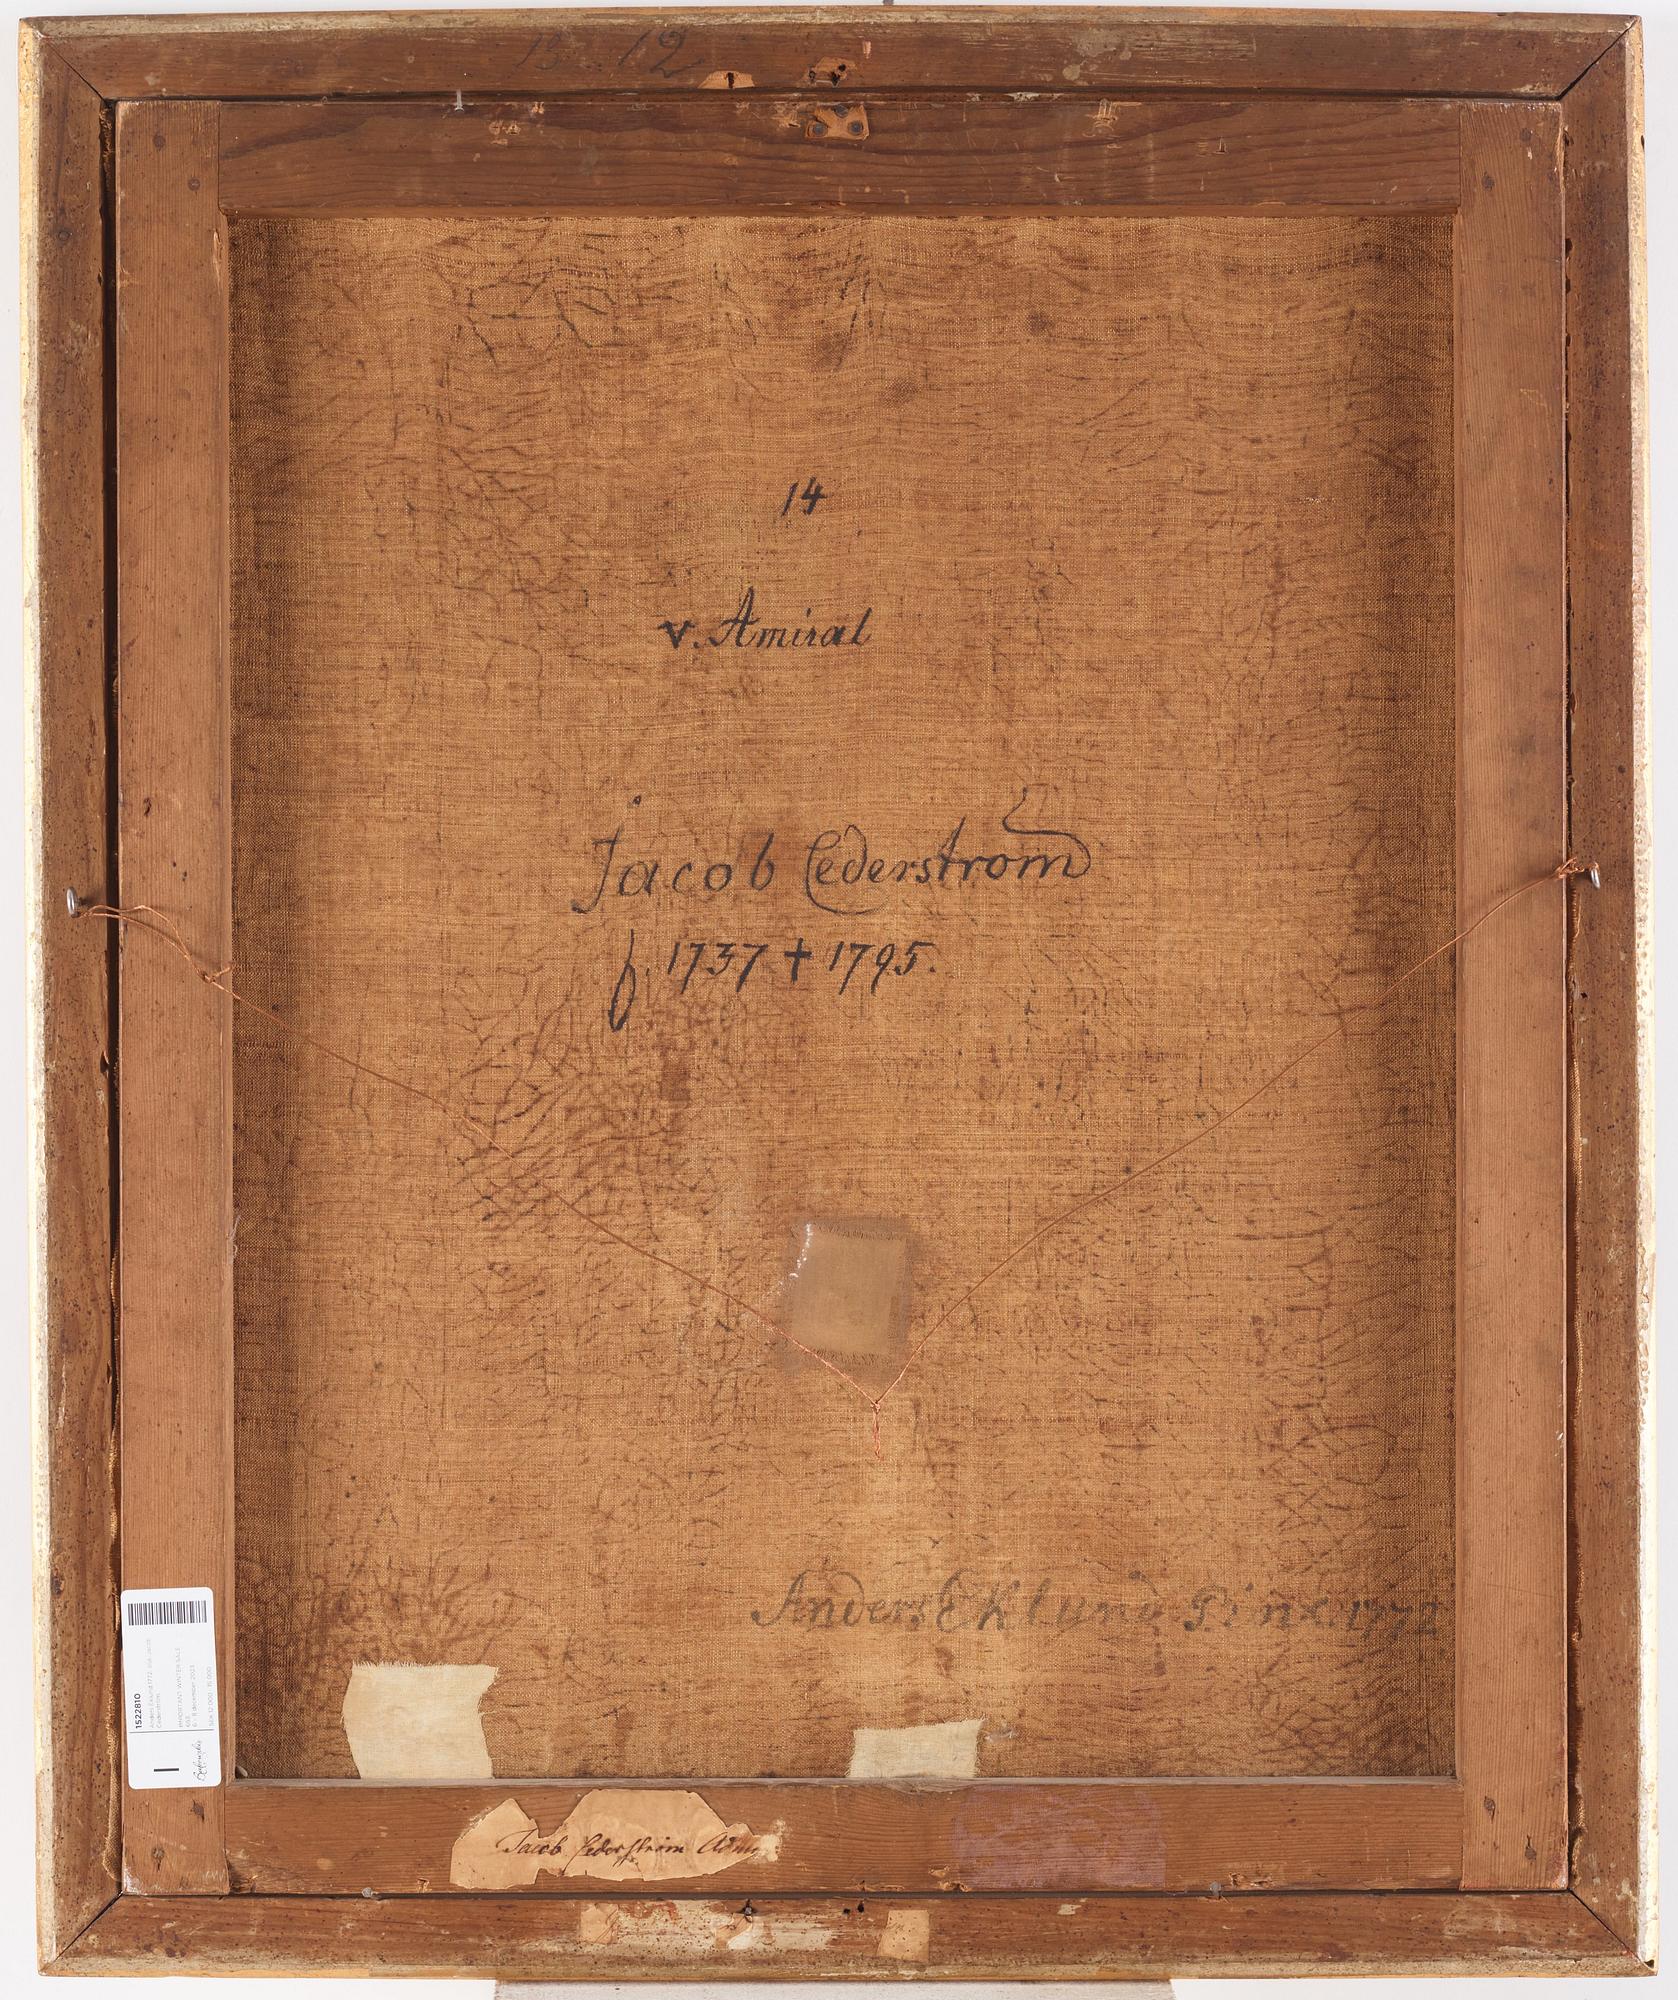 12
14
v. Amiral
Jacob Cederström
f. 1737 † 1795.
Anders Eklund Pinx. 1772
1522810
Anders Eklund 1772, olja, Jacob
Cederström.
IMPORTANT WINTER SALE
653
6 - 8 december 2023
SEK 12 000 - 15 000
Jacob Cederström Adm